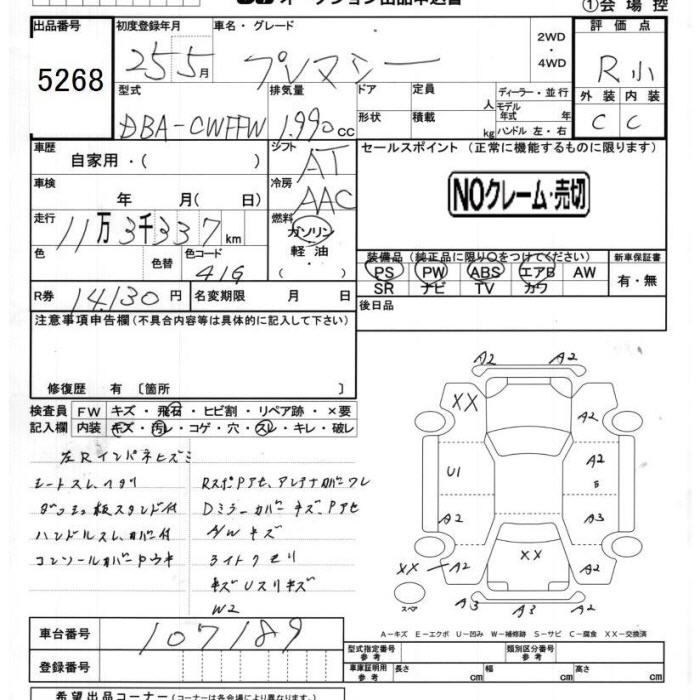 ①会場控
出品番号 初度登録年月 車名・グレード 評価点
5268
25 5月 プレマシー
2WD
・
4WD
R小
外装 内装
C C
型式 排気量 ドア 定員 人 ディーラー・並行
DBA-CWFFW 1.990cc
モデル年式 年
形状 積載 kg ハンドル 左・右
車歴 シフト セールスポイント (正常に機能するものに限ります)
自家用・( ) AT
NOクレーム・売切
車検 冷房
年 月( 日) AAC
走行 燃料
11万3千337km ガソリン
軽油・
( )
色 色替 色コード
41G
装備品(純正品に限り○をつけてください) 新車保証書
PS PW ABS エアB AW 有・無
SR ナビ TV カワ
R券 14,130円 名変期限 月 日 後日品
注意事項申告欄(不具合内容等は具体的に記入して下さい)
修復歴 有 〔箇所 〕
検査員 FW キズ・飛石・ヒビ割・リペア跡・×要
記入欄 内装 キズ・汚レ・コゲ・穴・スレ・キレ・破レ
左Rインパネヒズミ
シートスレ、ヘタリ
ダッシュ板スタンド付
ハンドルスレ、カバー付
コンソールカバー
RスポPアセ、アンテナカバーワレ
Dミラーカバーキズ、Pアセ
A/Wキズ
ライトクモリ
キズUスリキズ
W2
A2 A2
XX
A2
U1 A2
S
A2 A3
XX
XX A2 A2
スペア
A3 A3 A2
A-キズ E-エクボ U-凹み W-補修跡 S-サビ C-腐食 XX-交換済
車台番号 107189
登録番号
型式指定番号 参考 類別区分番号 参考
車庫証明用 参考 長さ cm 幅 cm 高さ cm
希望出品コーナー(コーナーは各会場により異なります)